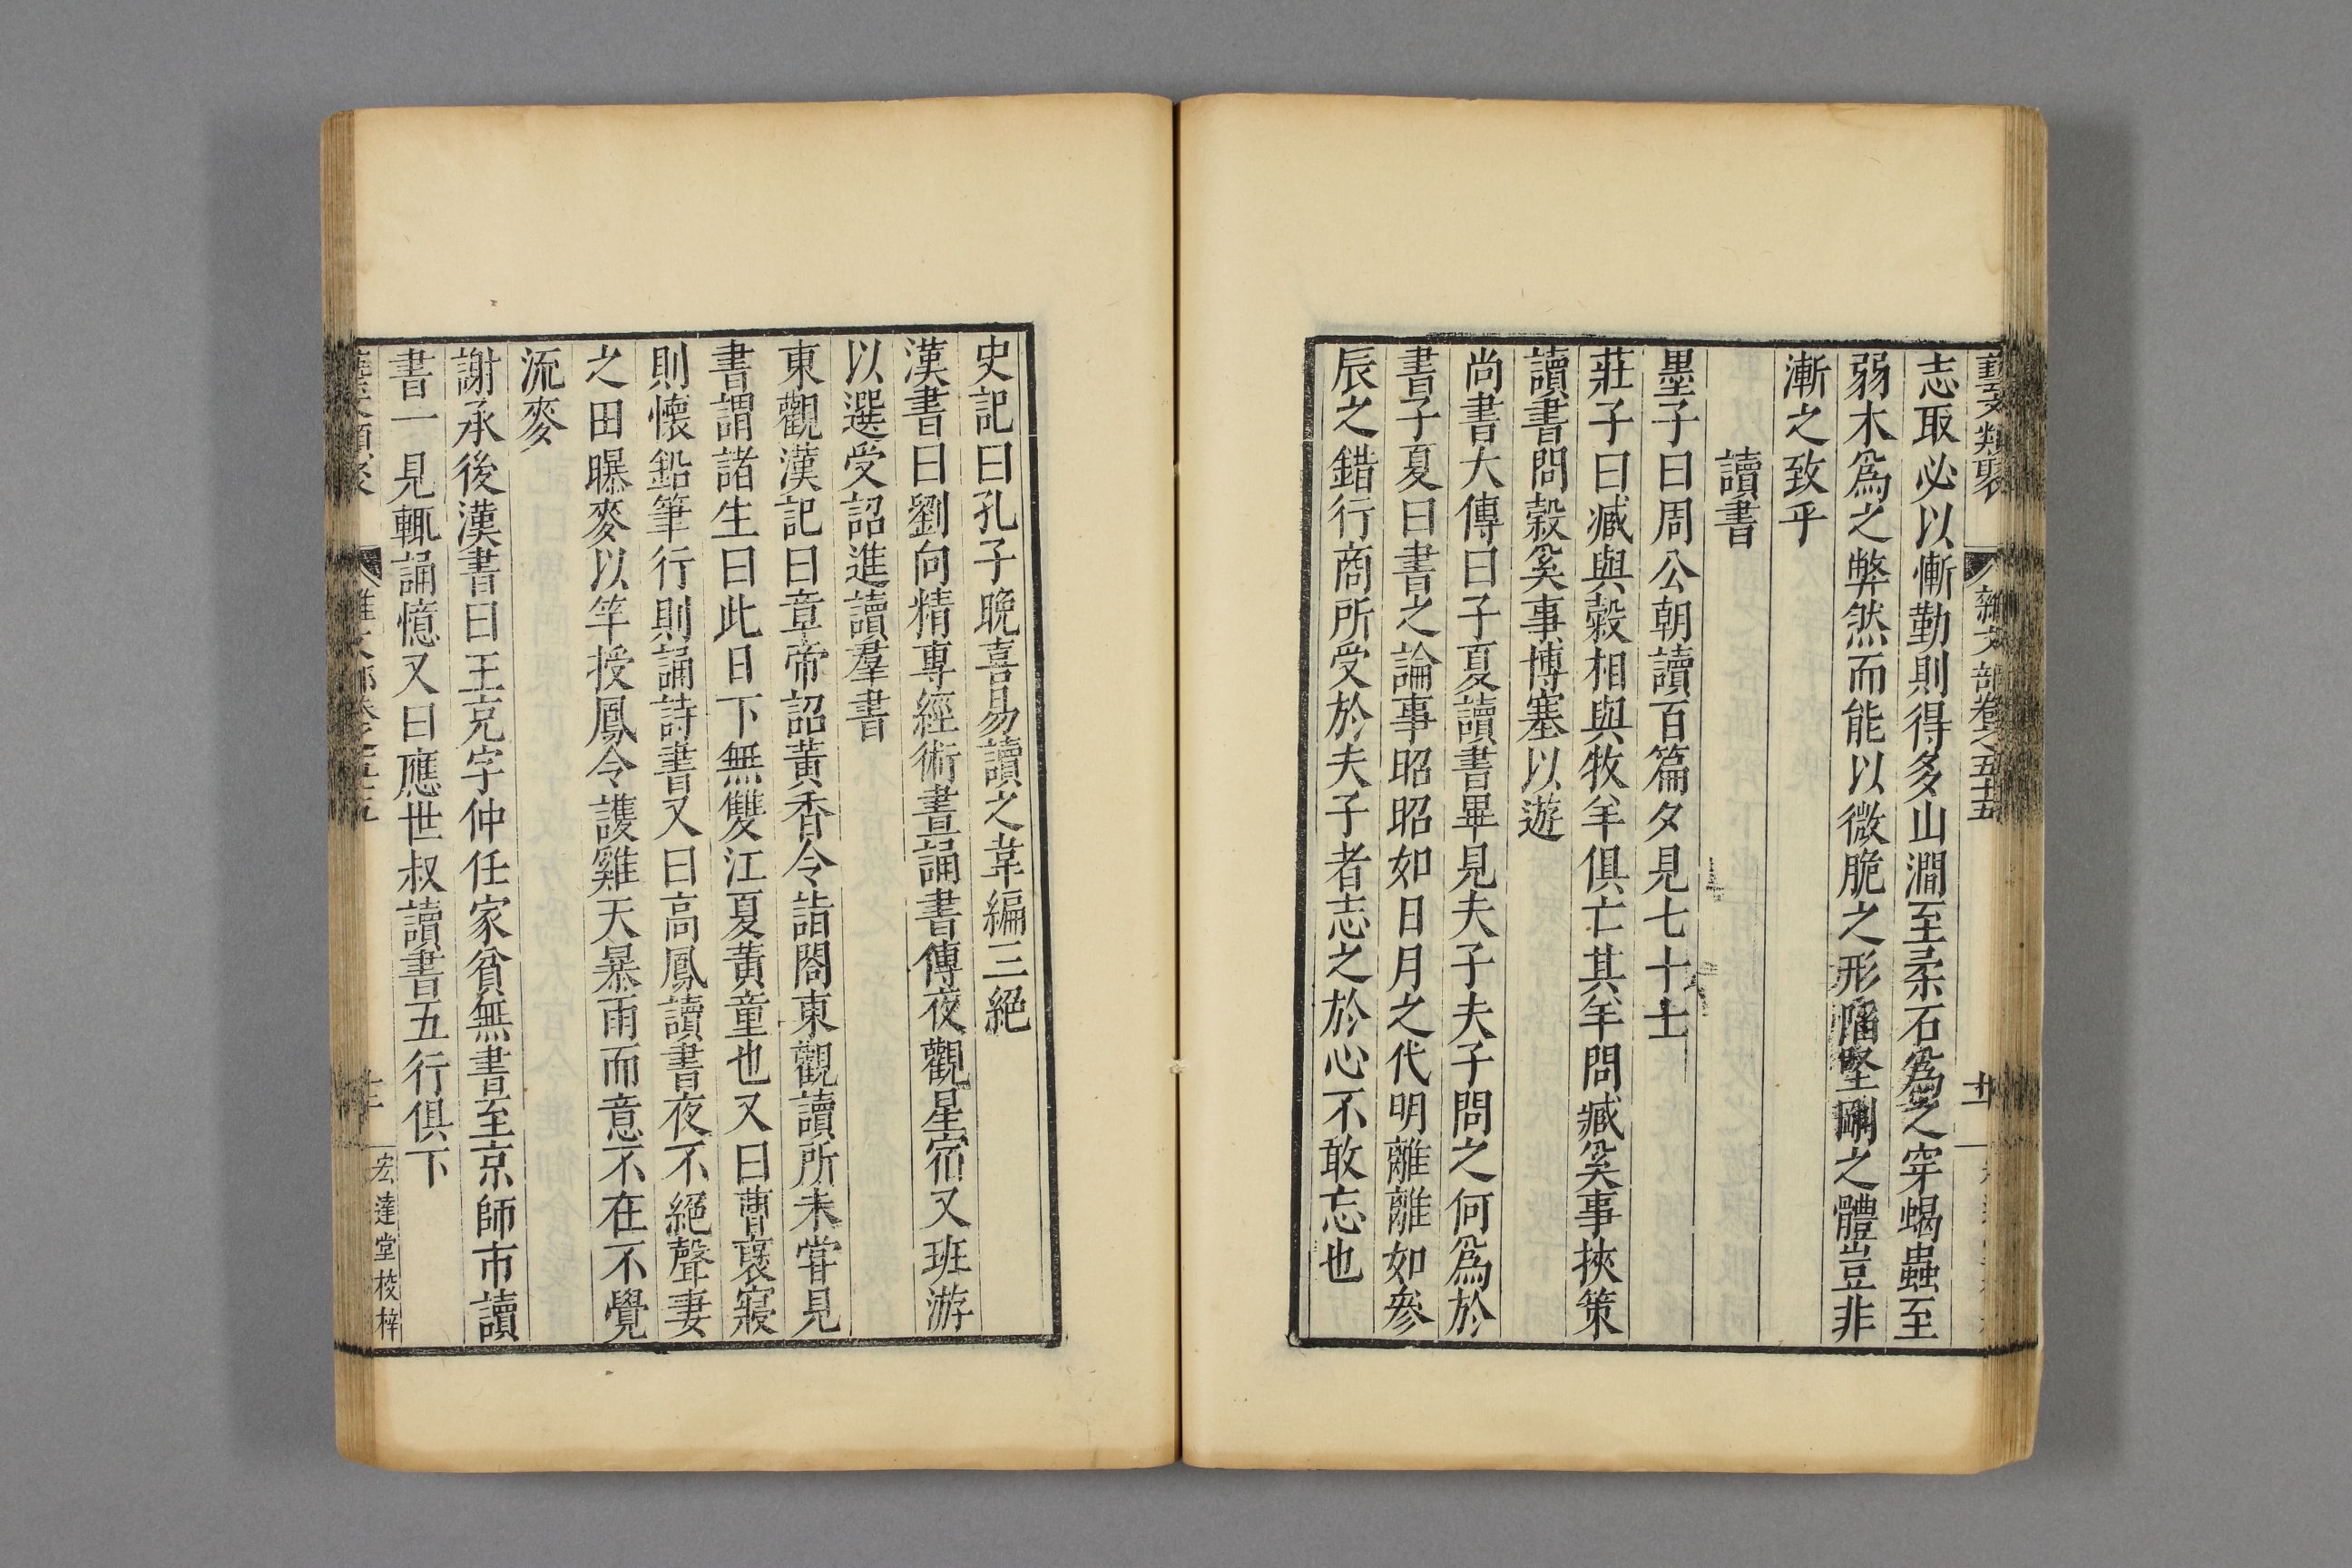 藝文類聚 雜文部卷之五十五
志取必以慚勤則得多山澗至柔石爲之穿蝎蟲至
弱木爲之弊然而能以微脆之形陷堅剛之體豈非
漸之致乎
讀書
墨子曰周公朝讀百篇夕見七十士
莊子曰臧與榖相與牧羊俱亡其羊問臧奚事挾策
讀書問榖奚事博塞以遊
尚書大傳曰子夏讀書畢見夫子夫子問之何爲於
書子夏曰書之論事昭昭如日月之代明離離如參
辰之錯行商所受於夫子者志之於心不敢忘也
史記曰孔子晚喜易讀之韋編三絕
漢書曰劉向精專經術晝誦書傳夜觀星宿又班游
以選受詔進讀羣書
東觀漢記曰章帝詔黄香令詣閤東觀讀所未甞見
書謂諸生曰此日下無雙江夏黄童也又曰曹襃寢
則懷鉛筆行則誦詩書又曰高鳳讀書夜不絕聲妻
之田曝麥以竿授鳳令護雞天暴雨而意不在不覺
流麥
謝承後漢書曰王充字仲任家貧無書至京師市讀
書一見輒誦憶又曰應世叔讀書五行俱下
宏達堂校梓